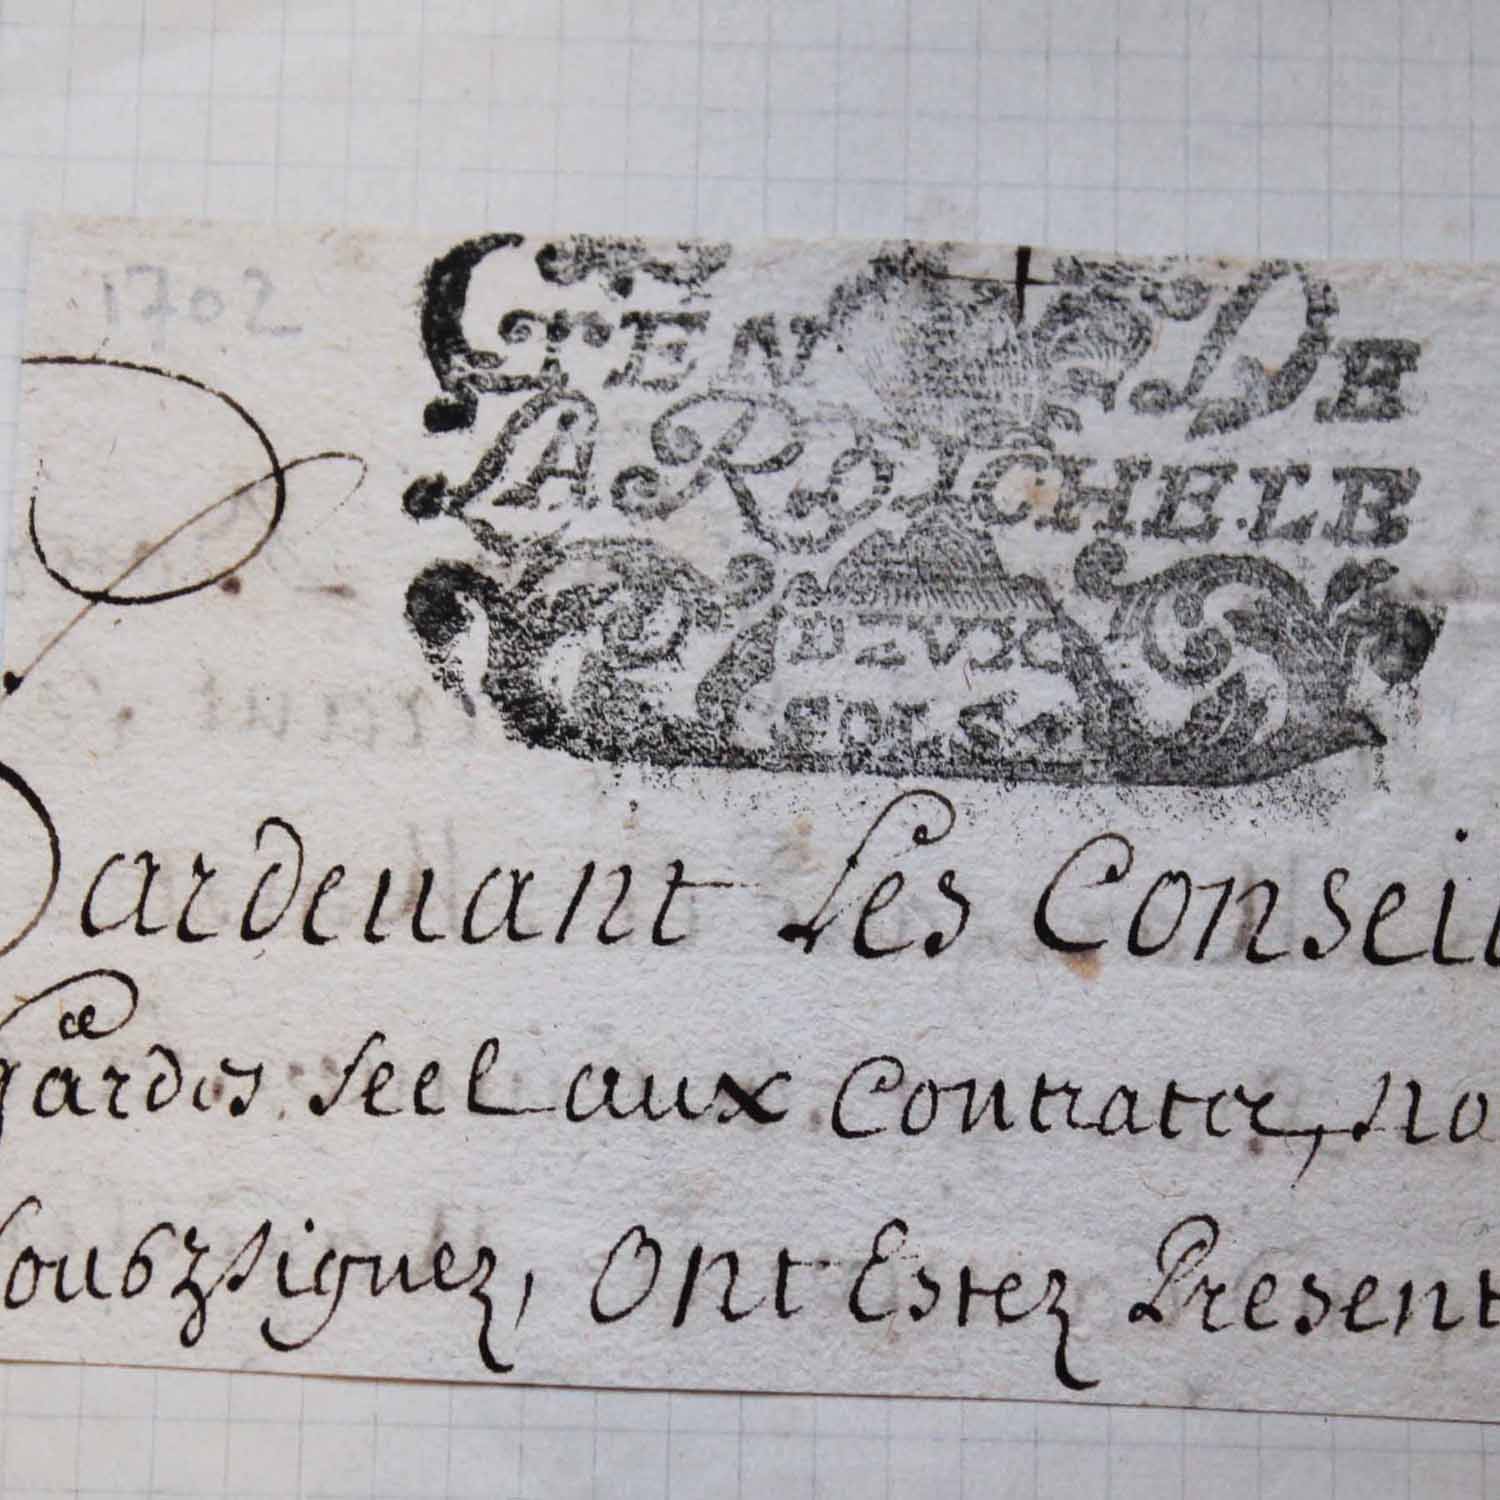 1702
GEN DE
LA ROCHELLE
DEUX
SOLS
Pardeuant Les Conseil
gardes seel aux Contratz, no
soubzsignez, Ont Estez Present